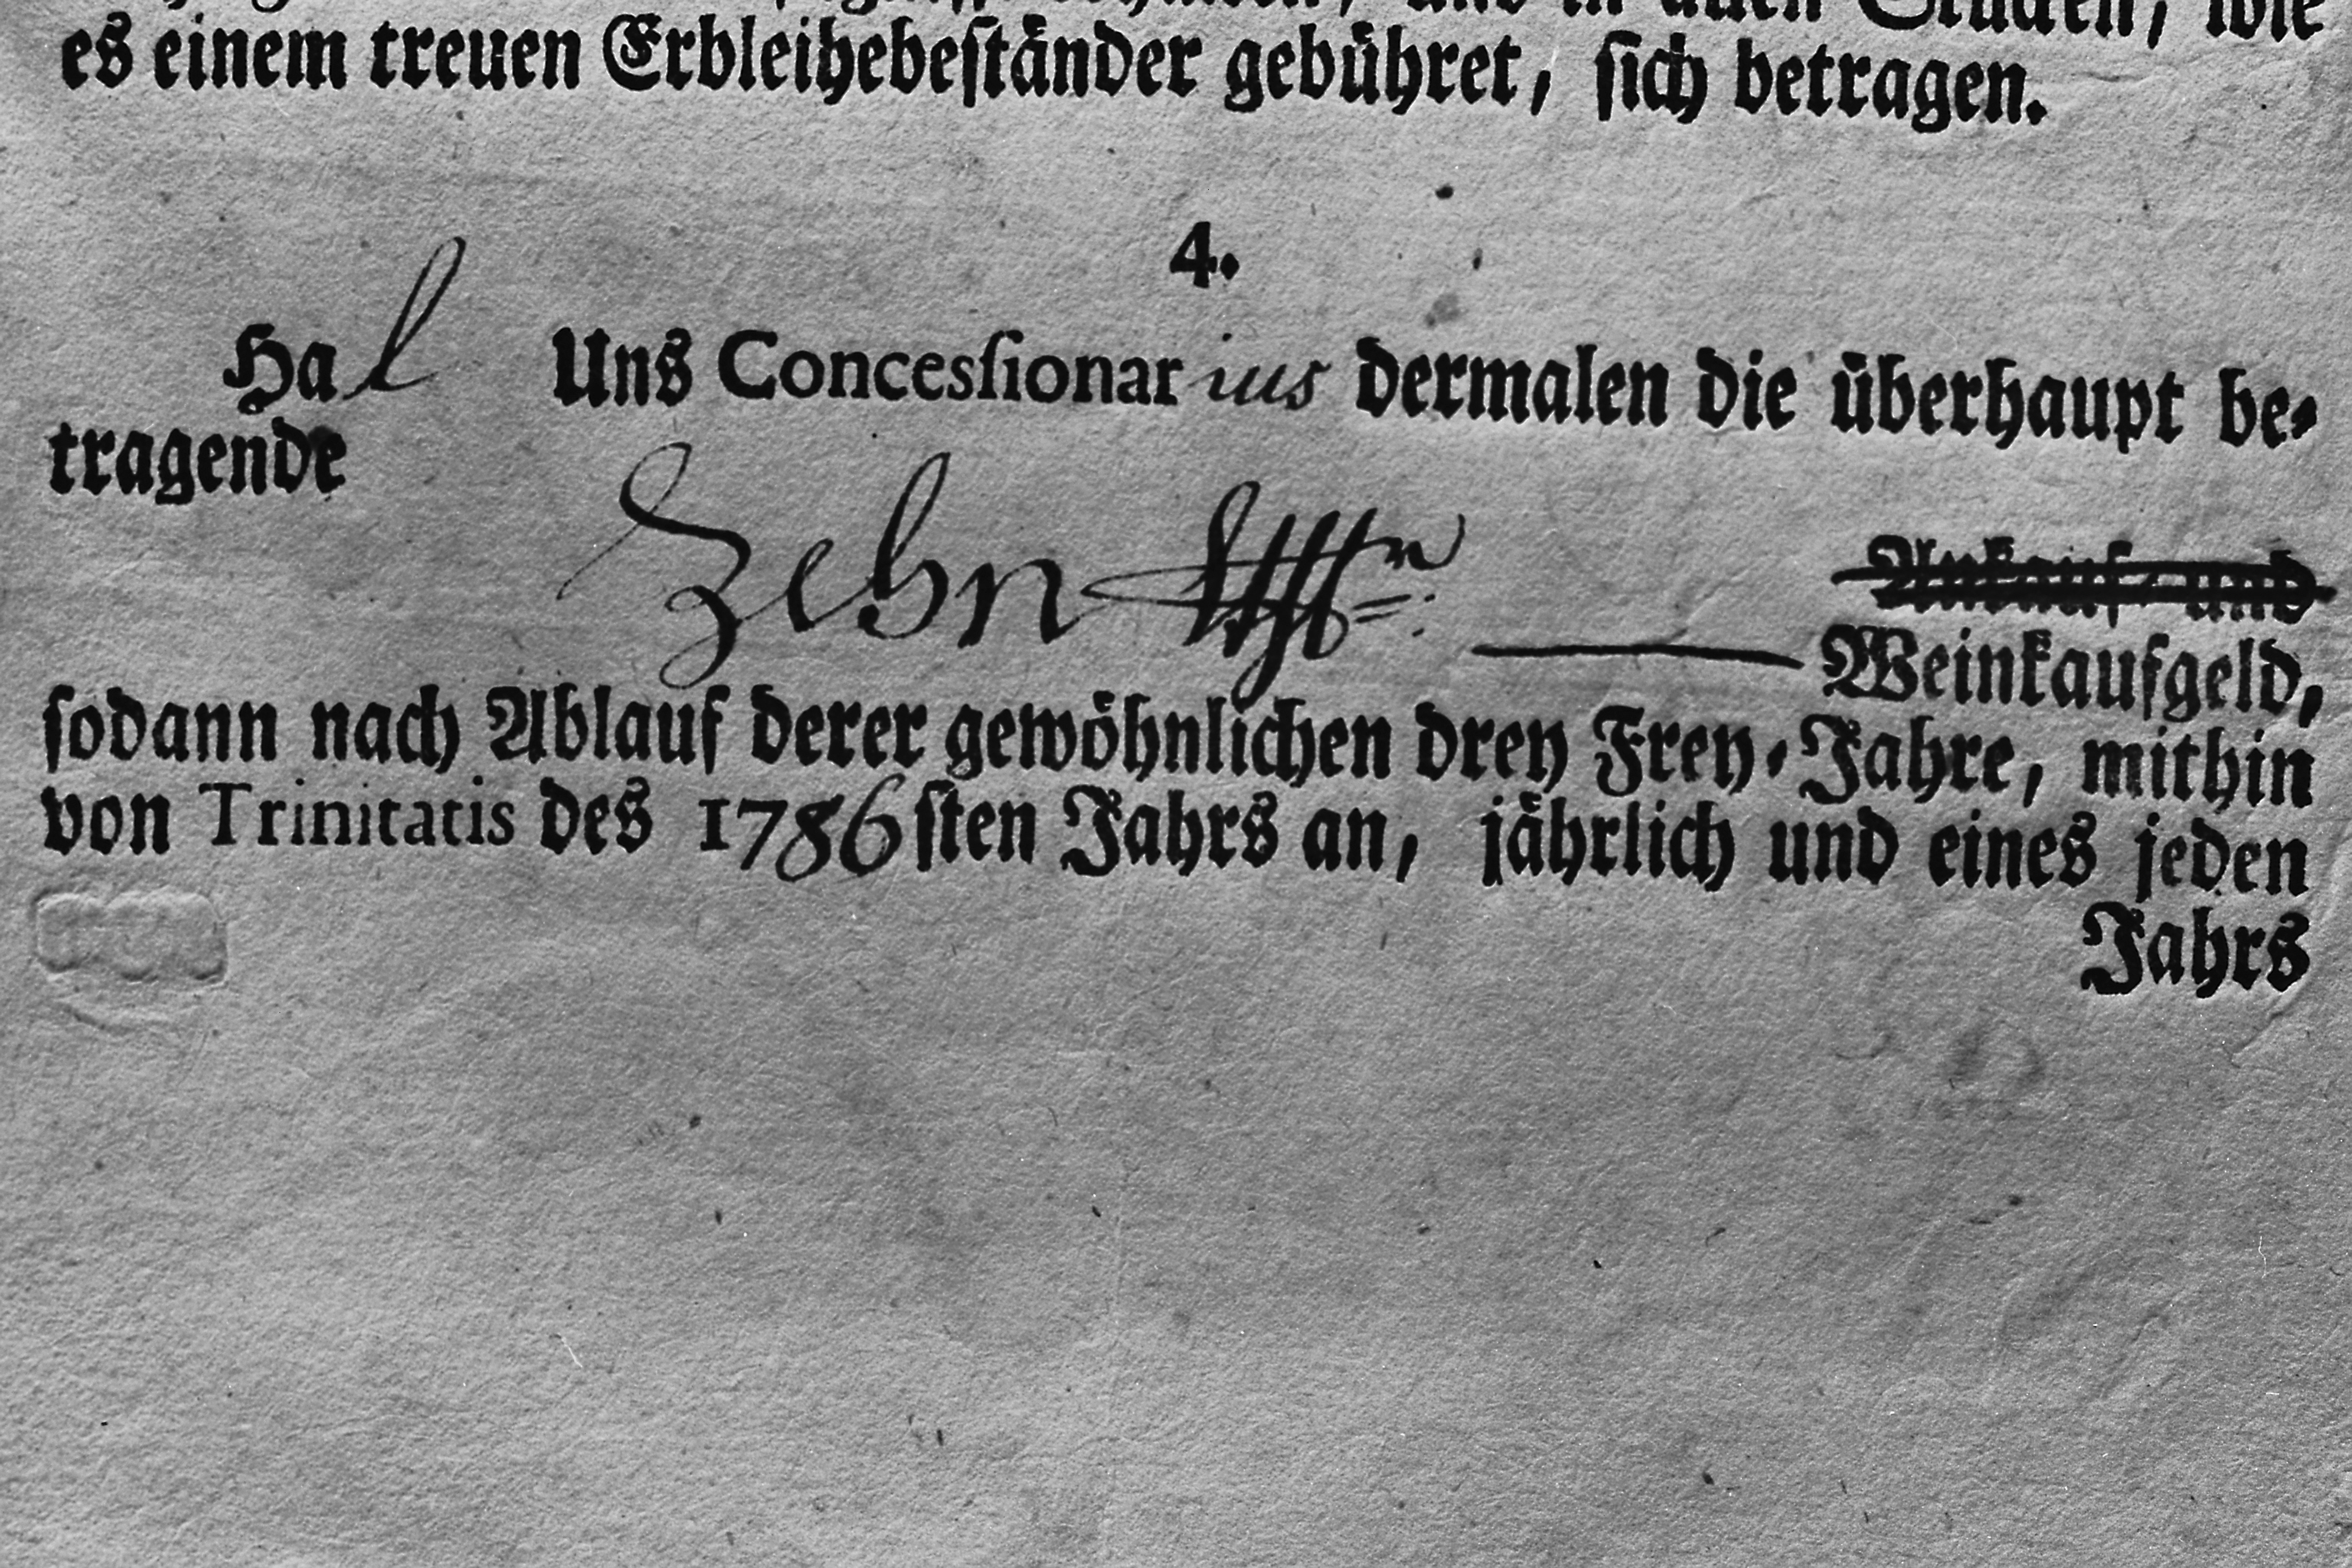 und in allen Stücken, wie
es einem treuen Erbleihebeständer gebühret, sich betragen.
4.
Hat Uns Concessionarius dermalen die überhaupt be-
tragende
Zehn
Ankauf- und
Weinkaufgeld,
sodann nach Ablauf derer gewöhnlichen drey Frey-Jahre, mithin
von Trinitatis des 1786sten Jahrs an, jährlich und eines jeden
Jahrs